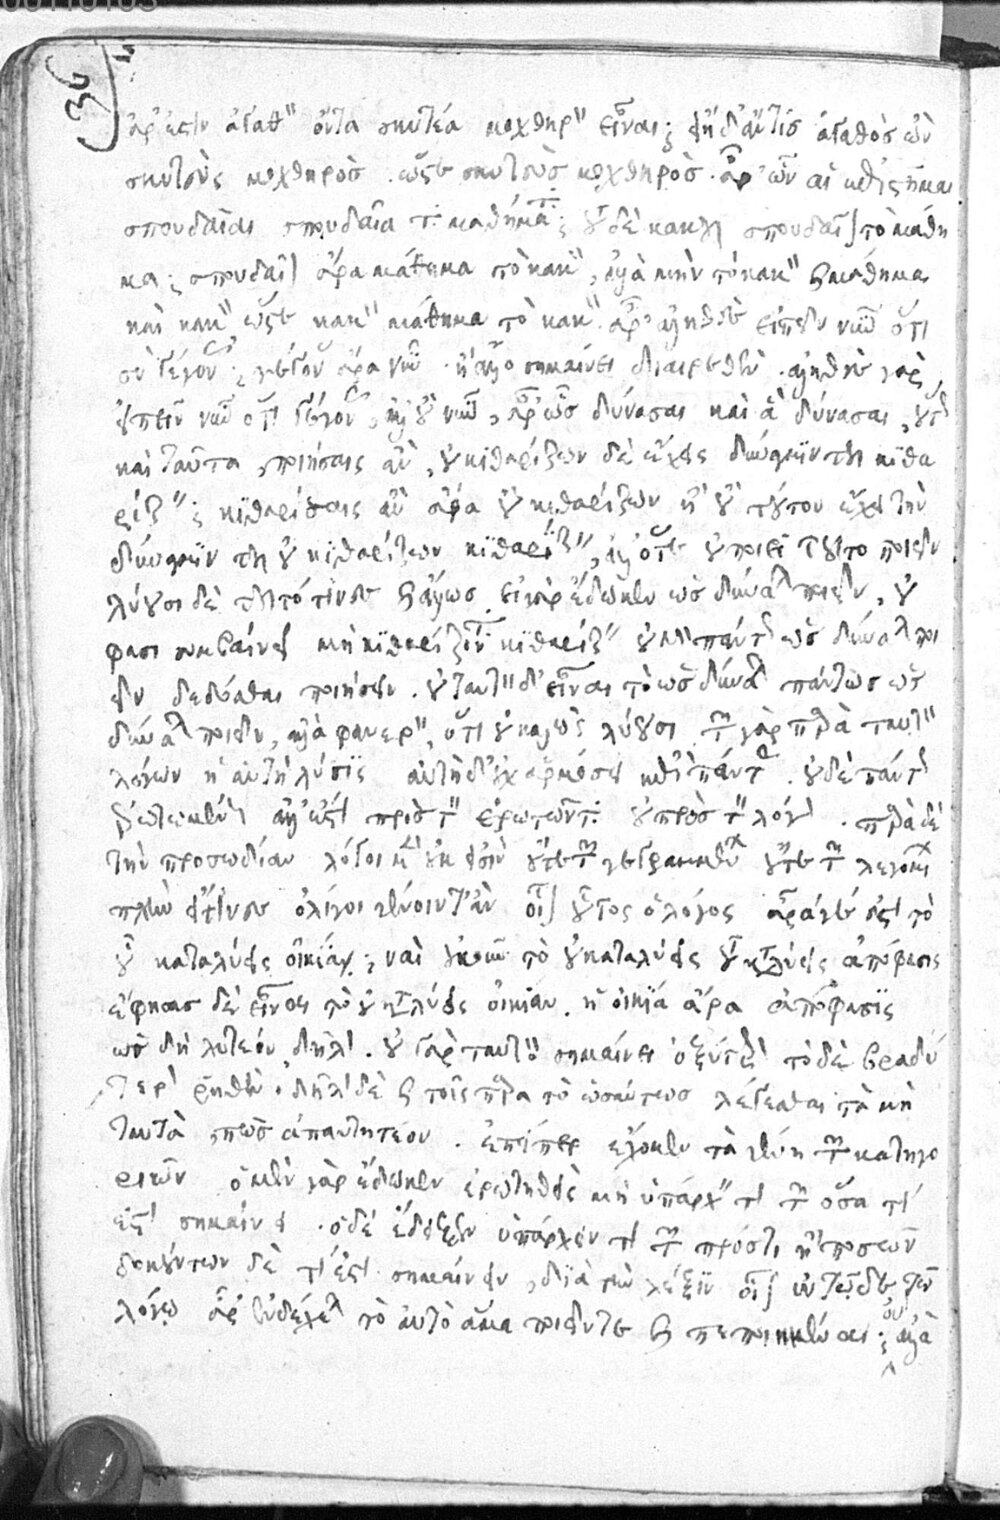 ἆρ' ἐστὶν ἀγαθὸν ὄντα σκυτέα μοχθηρὸν εἶναι; εἴη δ' ἄν τις ἀγαθὸς ὢν
σκυτεὺς μοχθηρός. ὥστε σκυτεὺς μοχθηρός. ἆρ' ὧν αἱ ἐπιστῆμαι
σπουδαῖαι σπουδαῖα τὰ μαθήματα; τοῦ δὲ κακοῦ σπουδαῖον τὸ μάθη
μα; σπουδαῖον ἄρα μάθημα τὸ κακόν, ἀλλὰ μὴν τὸ κακὸν καὶ μάθημα
καὶ κακὸν ὥστε κακὸν μάθημα τὸ κακόν. ἆρ' ἀληθὲς εἰπεῖν νῦν ὅτι
σὺ γέγονας; γέγονας ἄρα νῦν. ἢ ἄλλο σημαίνει διαιρεθέν. ἀληθὲς γὰρ
εἰπεῖν νῦν ὅτι γέγονας, ἀλλ' οὐ νῦν, ἆρ' ὡς δύνασαι καὶ ἃ δύνασαι, οὕτως
καὶ ταῦτα ποιήσαις ἄν, οὐ κιθαρίζων δὲ ἔχεις δύναμιν τοῦ κιθα
ρίζειν; κιθαρίσαις ἂν ἄρα οὐ κιθαρίζων ἢ οὐ τούτου ἔχει τὴν
δύναμιν τοῦ οὐ κιθαρίζων κιθαρίζειν, ἀλλ' ὅτε οὐ ποιεῖ τοῦ ποιεῖν
λύουσι δὲ τοῦτό τινες καὶ ἄλλως. εἰ γὰρ ἔδωκεν ὡς δύναται ποιεῖν, οὔ
φασι συμβαίνειν μὴ κιθαρίζοντα κιθαρίζειν οὐ γὰρ πάντως ὡς δύναται ποι
εῖν δεδόσθαι ποιήσειν. οὐ ταυτὸν δ' εἶναι τὸ ὡς δύναται πάντως ὡς
δύναται ποιεῖν, ἀλλὰ φανερόν, ὅτι οὐ καλῶς λύουσι τῶν γὰρ παρὰ ταυτὸν
λόγων ἡ αὐτὴ λύσις αὕτη δ' οὐχ ἁρμόσει ἐπὶ πάντας. οὐδὲ πάντως
ἐρωτωμένους ἀλλ' ἔστι πρὸς τὸν ἐρωτῶντα οὐ πρὸς τὸν λόγον. παρὰ δὲ
τὴν προσῳδίαν λόγοι μὲν οὐκ εἰσὶν οὔτε τῶν γεγραμμένων οὔτε τῶν λεγομένων
πλὴν εἴ τινες ὀλίγοι γένοιντ' ἂν οἷον οὗτος ὁ λόγος ἆρά γέ ἐστι τὸ
οὗ καταλύεις οἰκία; ναί οὐκοῦν τὸ οὐ καταλύεις τοῦ καταλύεις ἀπόφασις
ἔφησας δὲ εἶναι τὸ οὗ καταλύεις οἰκίαν. ἡ οἰκία ἄρα ἀπόφασις
ὡς δὴ λυτέον δῆλον. οὐ γὰρ ταυτὸν σημαίνει ὀξύτερον τὸ δὲ βραδύ
τερον ῥηθέν. δῆλον δὲ καὶ τοῖς παρὰ τὸ ὡσαύτως λέγεσθαι τὰ μὴ
ταὐτὰ πῶς ἀπαντητέον. ἐπείπερ ἔχομεν τὰ γένη τῶν κατηγο
ριῶν ὁ μὲν γὰρ ἔδωκεν ἐρωτηθεὶς μὴ ὑπάρχειν τι τῶν ὅσα τί
ἐστι σημαίνει. ὁ δὲ ἔδειξεν ὑπάρχον τι τῶν πρός τι ἢ ποσῶν
δοκούντων δὲ τί ἐστι σημαίνειν, διὰ τὴν λέξιν οἷον ἐν τῷδε τῷ
λόγῳ ἆρ' ἐνδέχεται τὸ αὐτὸ ἅμα ποιεῖν τε καὶ πεποιηκέναι; οὔ ἀλλὰ